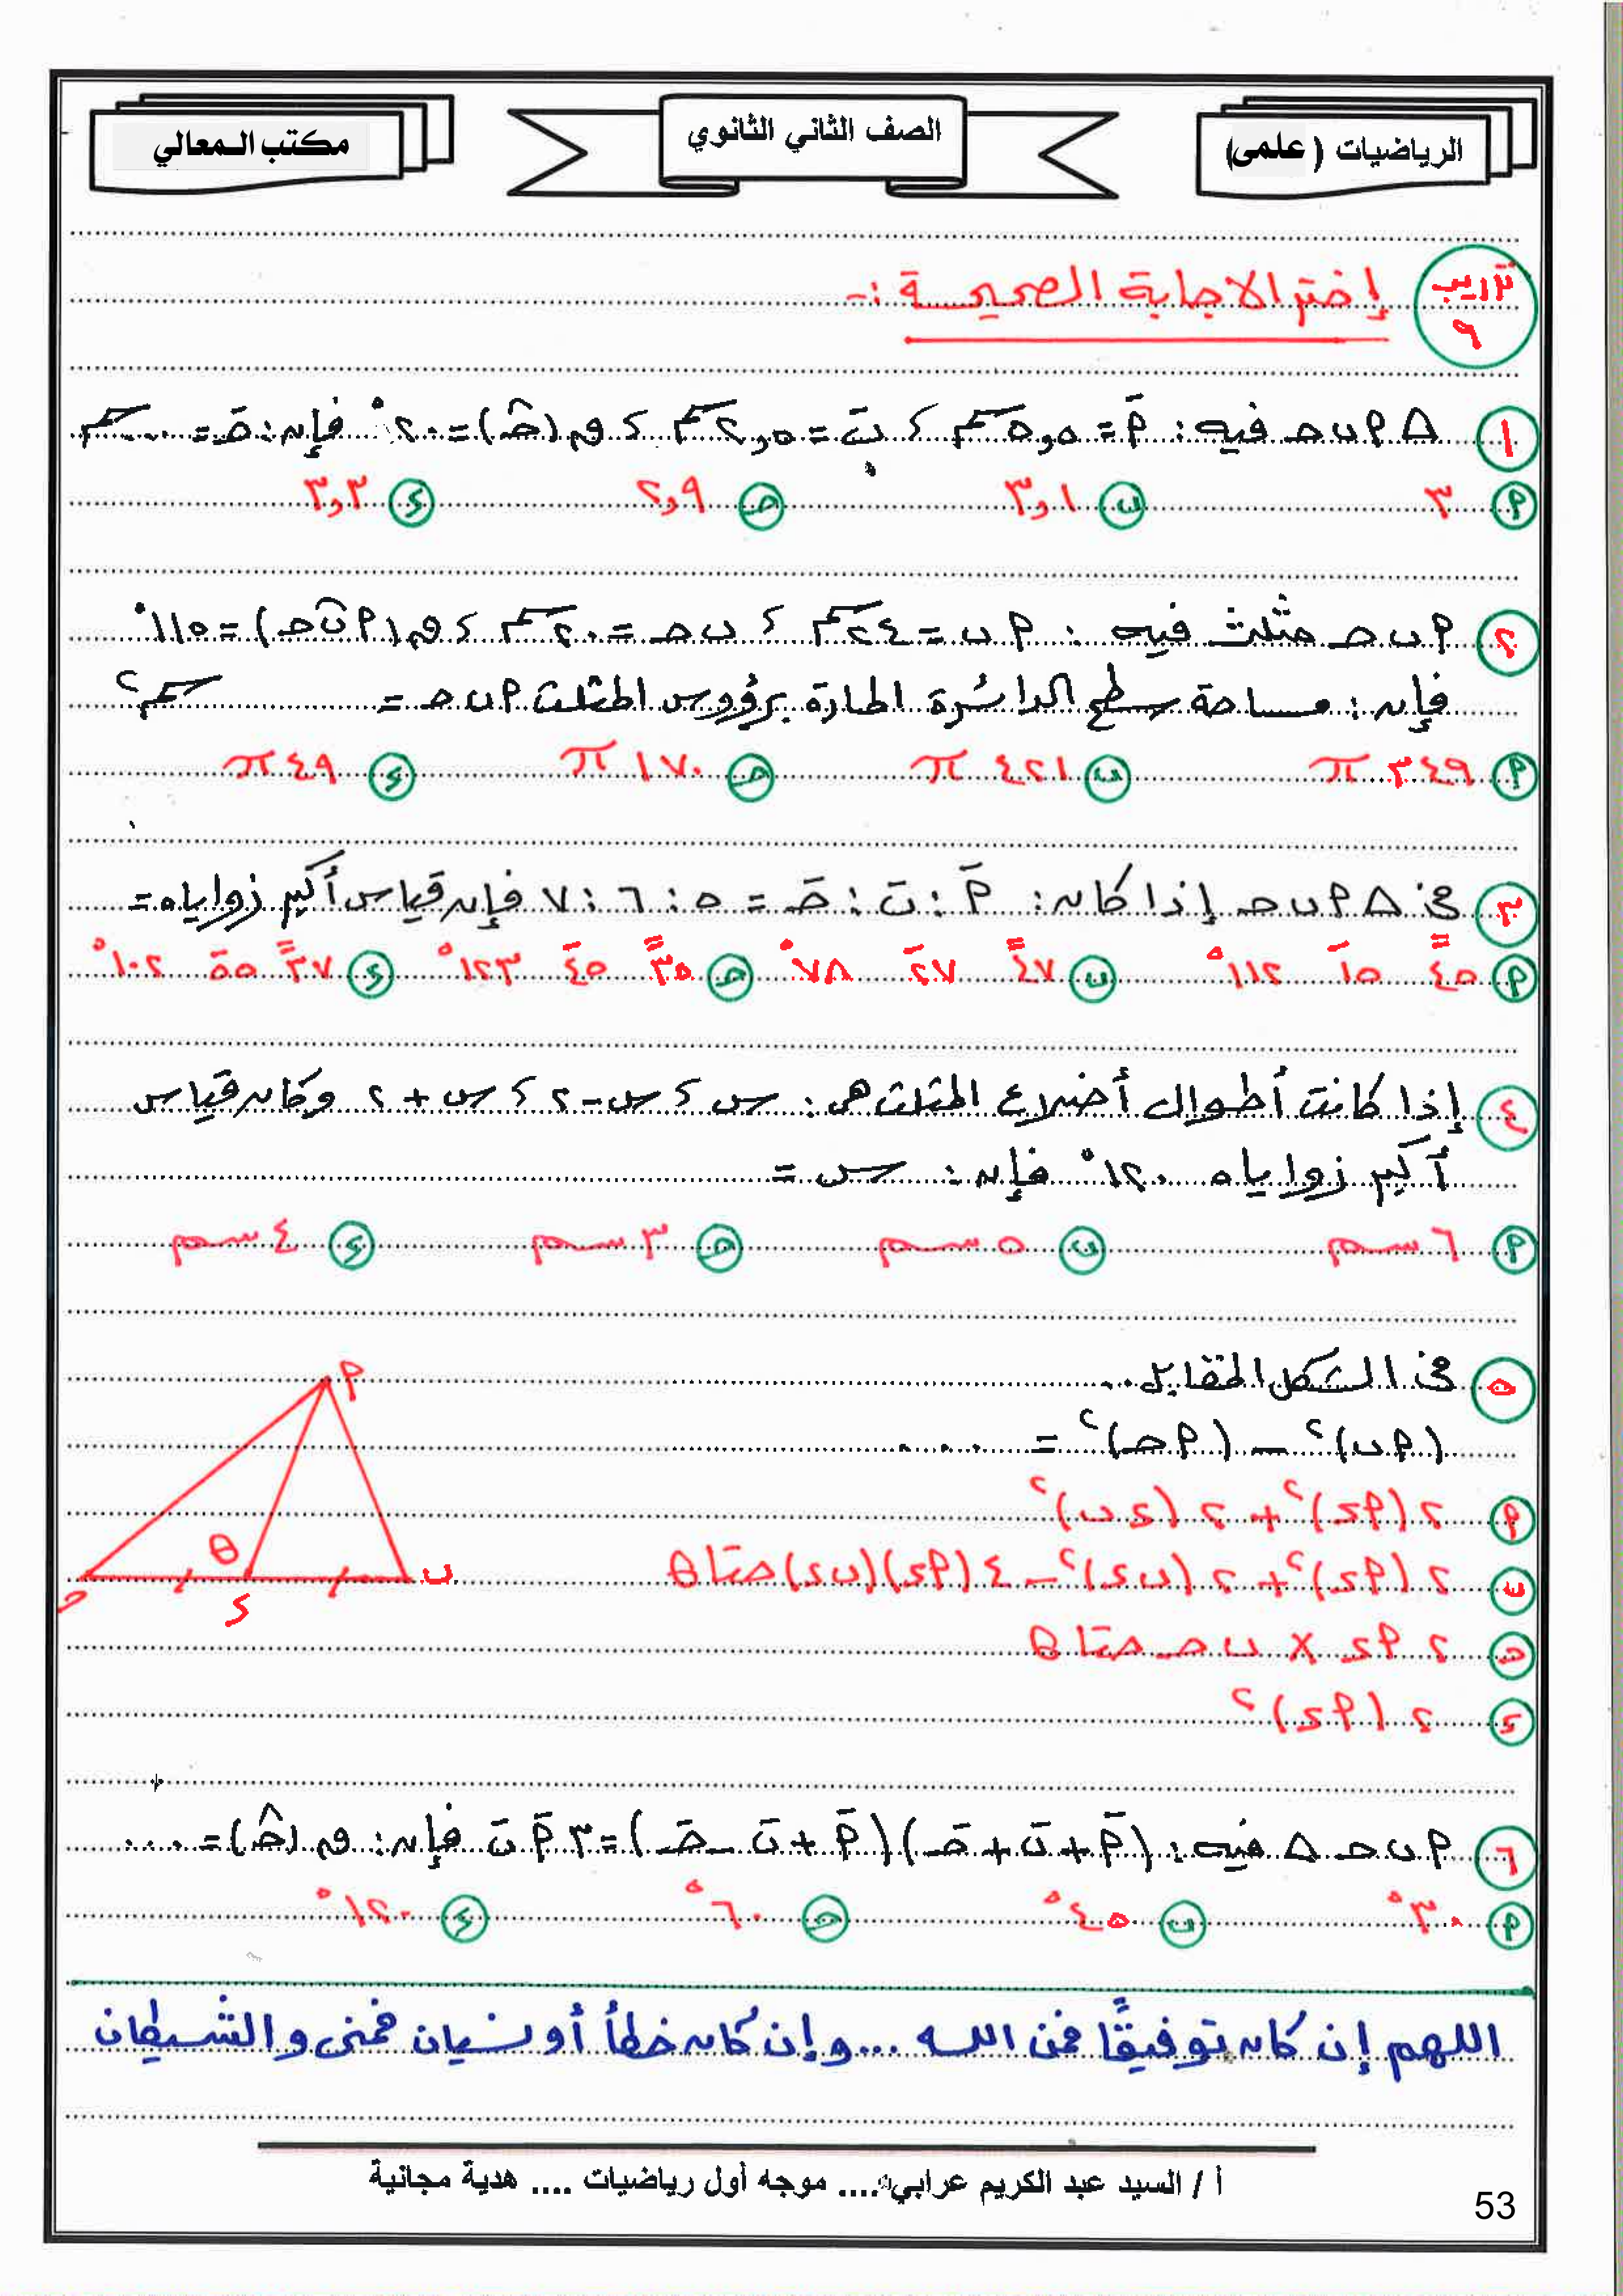 الرياضيات ( علمى)
الصف الثاني الثانوي
مكتب المعالي
تدريب ٩ إختر الاجابة الصحيحة :-
١ △ ٢ ب ح فيه : أَ = ٥,٥ سم ، بَ = ٢,٥ سم ، ق (حَ̂) = ٢٠° فإن : حَ = ..... سم
أ ٣ ب ٣,١ ح ٢,٩ ء ٣,٣
٢ أ ب ح مثلث فيه : أ ب = ٢٤ سم ، ب ح = ٢٠ سم ، ق (أ ب̂ ح) = ١١٥°
فإن : مساحة سطح الدائرة المارة برؤوس المثلث أ ب ح = ........ سم٢
أ ٣٤٩ π ب ٤٢١ π ح ١٧٠ π ء ٤٩ π
٣ في △ أ ب ح إذا كان : أَ : بَ : حَ = ٥ : ٦ : ٧ فإن قياس أكبر زواياه =
أ ٤٥ً ١٥َ ١١٢° ب ٤٧ً ٢٧َ ٧٨° ح ٣٥ً ٤٥َ ١٢٣° ء ٣٧ً ٥٥َ ١٠٢°
٤ إذا كانت أطوال أضلاع المثلث هى : س ، س - ٢ ، س + ٢ وكان قياس
أكبر زواياه ١٢٠° فإن : س =
أ ٦ سم ب ٥ سم ح ٣ سم ء ٤ سم
٥ في الشكل المقابل ..
(أ ب)٢ - (أ ح)٢ = ....
أ ٢ (أ ء)٢ + ٢ (ء ب)٢
ب ٢ (أ ء)٢ + ٢ (ب ء)٢ - ٤ (أ ء)(ب ء) حتا θ
ح ٢ أ ء × ب ح حتا θ
ء ٢ (أ ء)٢
أ
θ
ب
ء
ح
٦ أ ب ح △ فيه : (أَ + بَ + حَ)(أَ + بَ - حَ) = ٣ أَ بَ فإن : ق (حَ̂) = ....
أ ٣٠° ب ٤٥° ح ٦٠° ء ١٢٠°
اللهم إن كان توفيقًا فمن الله ... وإن كان خطأ أو نسيان فمنى والشيطان
أ / السيد عبد الكريم عرابي .... موجه أول رياضيات .... هدية مجانية
53